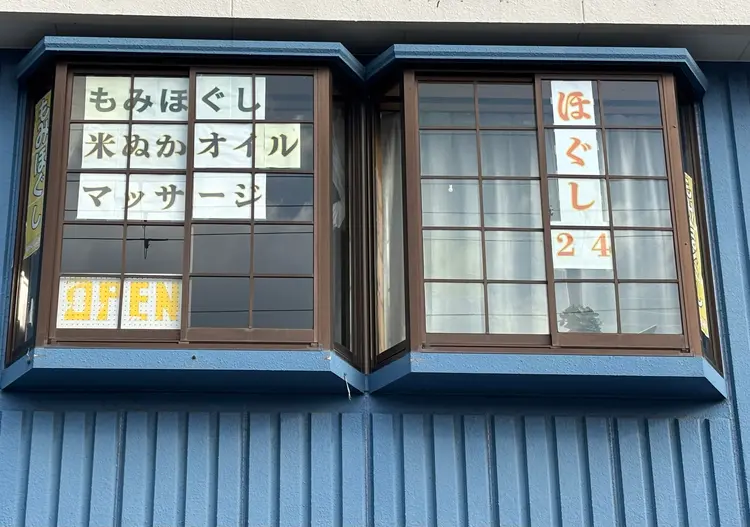 もみほぐし
もみほぐし
米ぬかオイル
マッサージ
OPEN
ほぐし
24